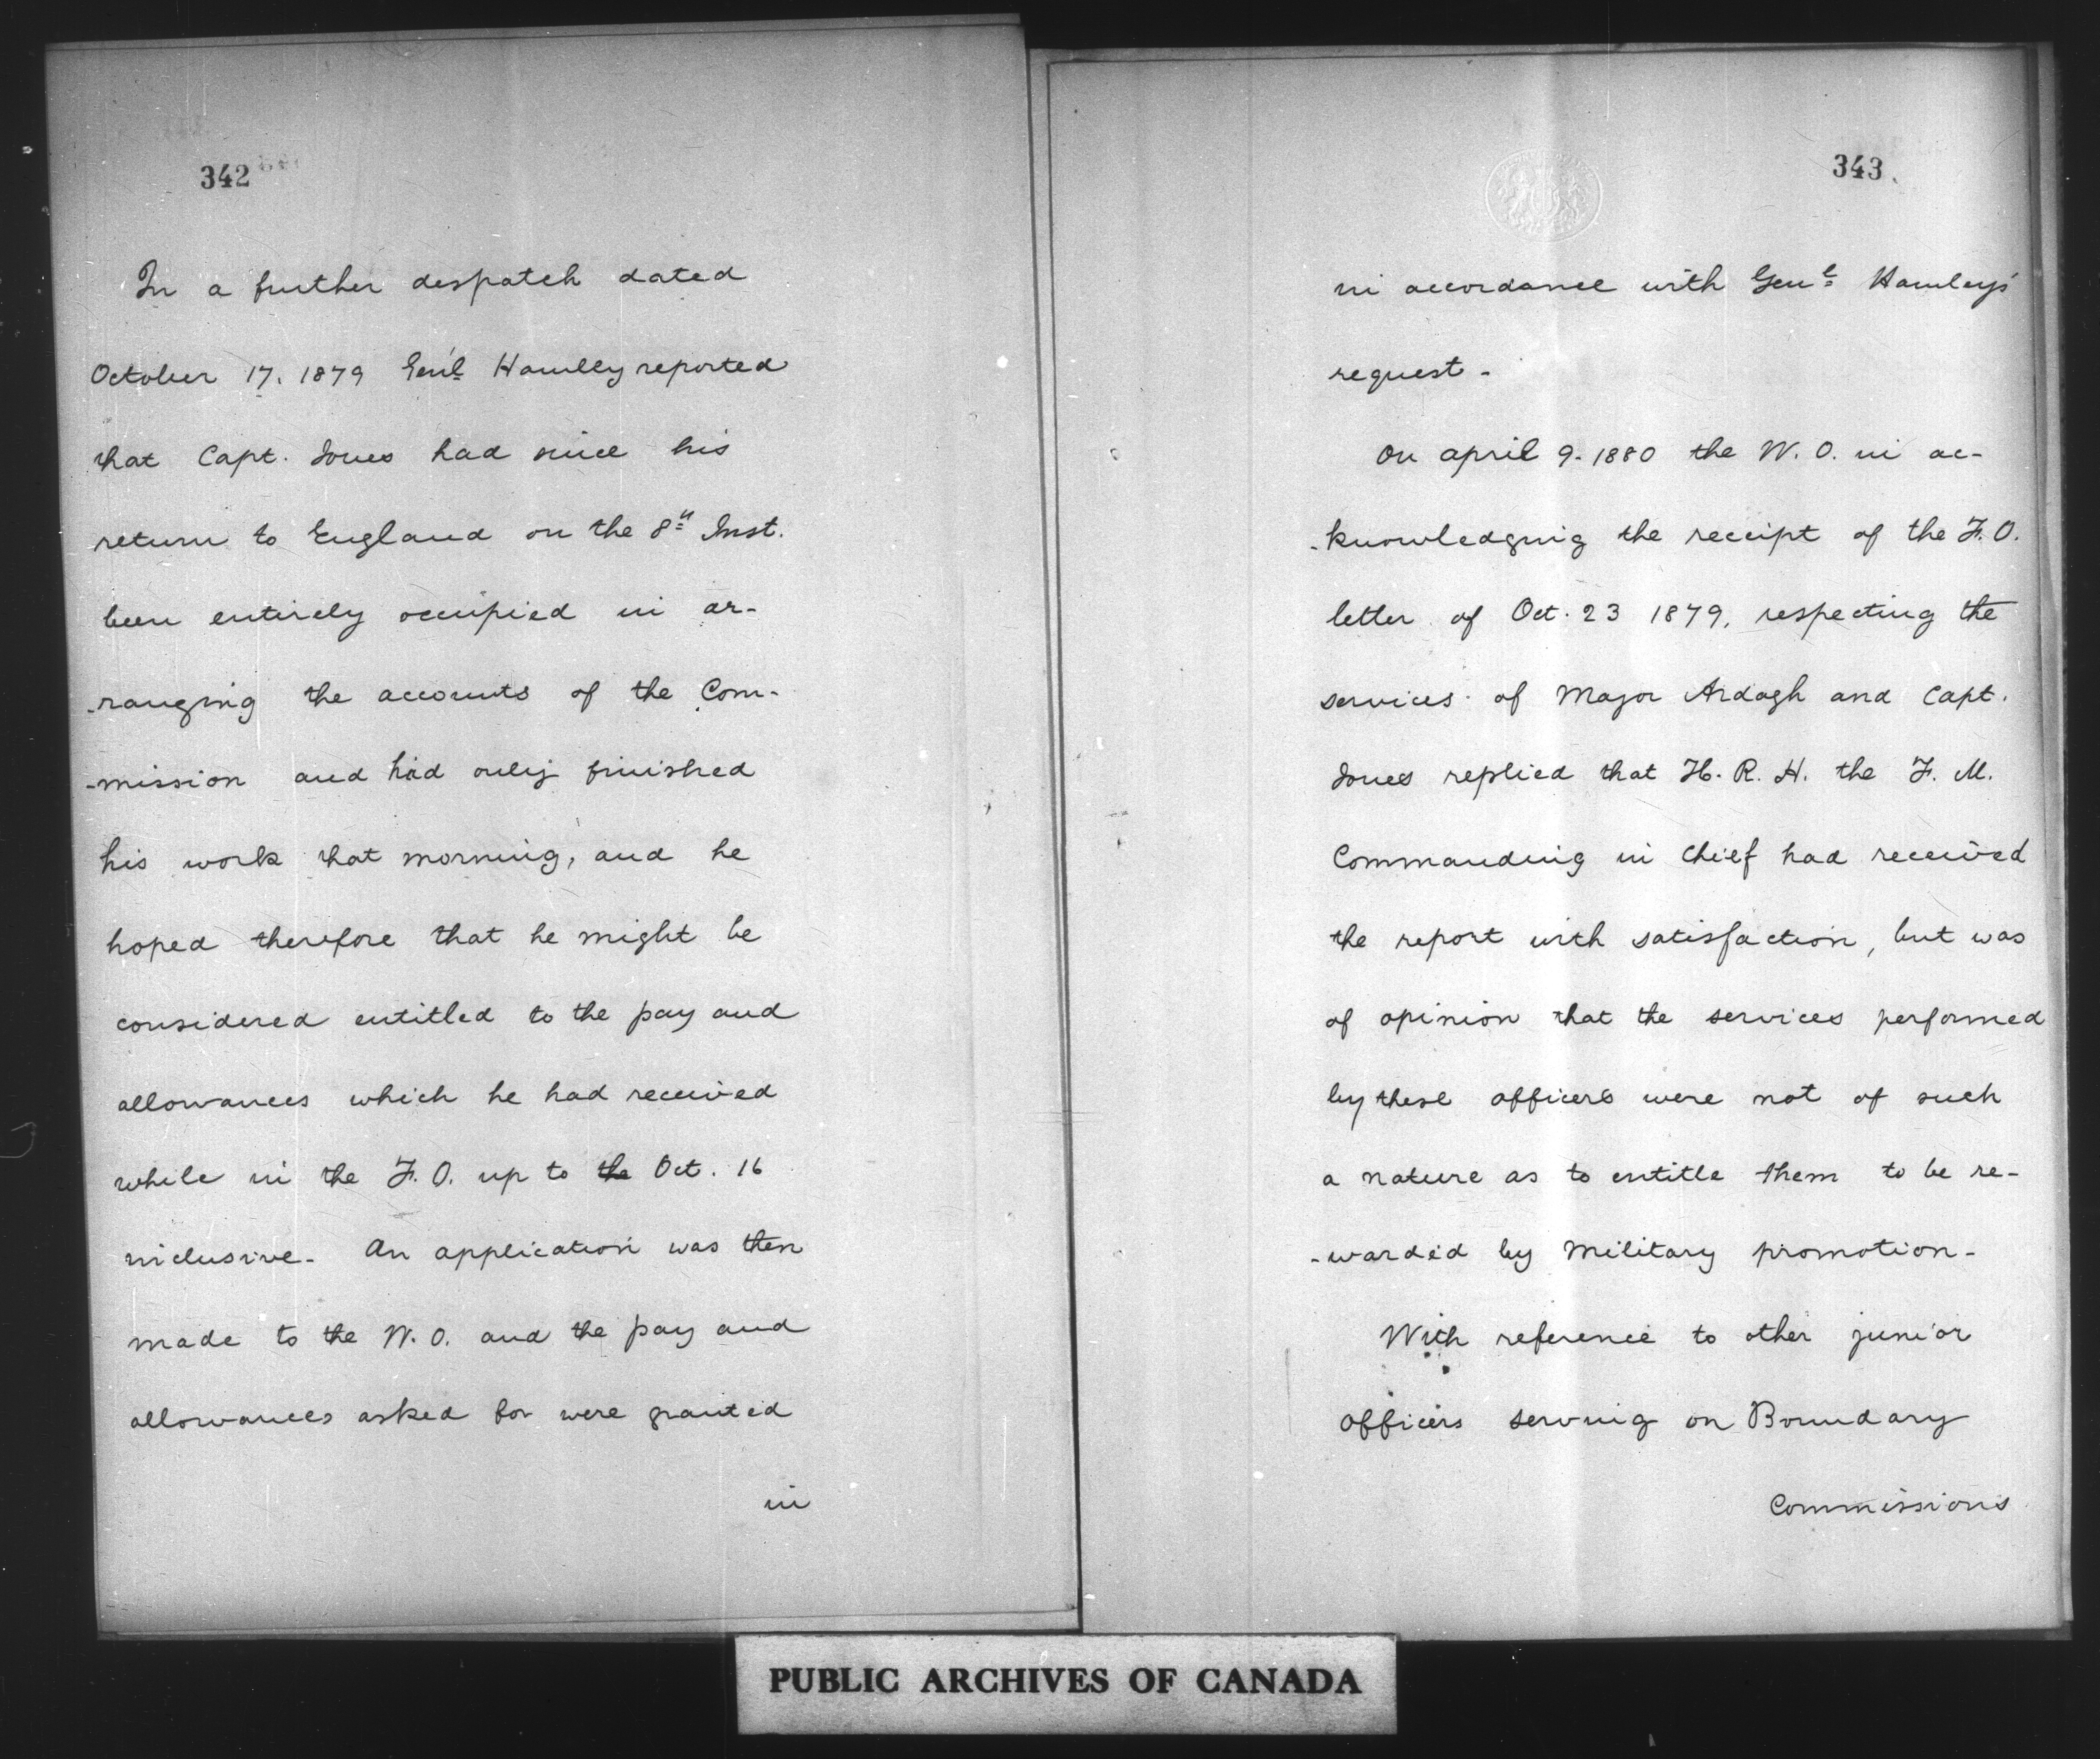 342
In a further despatch dated
October 17. 1879 Gen'l Hamley reported
that Capt. Jones had since his
return to England on the 8th Inst.
been entirely occupied in ar-
-ranging the accounts of the Com-
-mission and had only finished
his work that morning, and he
hoped therefore that he might be
considered entitled to the pay and
allowances which he had received
while in the F. O. up to the Oct. 16
inclusive. An application was then
made to the W. O. and the pay and
allowances asked for were granted
in
343
in accordance with Genl Hamley's
request.
On april 9. 1880 the W. O. in ac-
-knowledging the receipt of the F. O.
letter of Oct. 23 1879, respecting the
services of Major Ardagh and Capt.
Jones replied that H. R. H. the F. M.
Commanding in Chief had received
the report with satisfaction, but was
of opinion that the services performed
by these officers were not of such
a nature as to entitle them to be re-
-warded by Military promotion.
With reference to other junior
officers serving on Boundary
Commissions
PUBLIC ARCHIVES OF CANADA